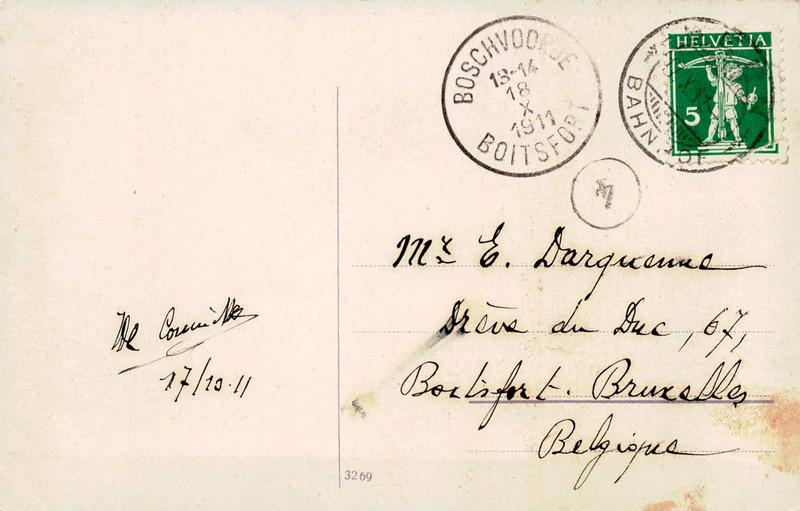 BOSCHVOORDE
13-14
18
X
1911
BOITSFORT
HELVETIA
5
BAHNHOF
Mr. E. Darquenne
Drève du Duc, 67,
Boitsfort. Bruxelles
Belgique
De
17/10-11
3269